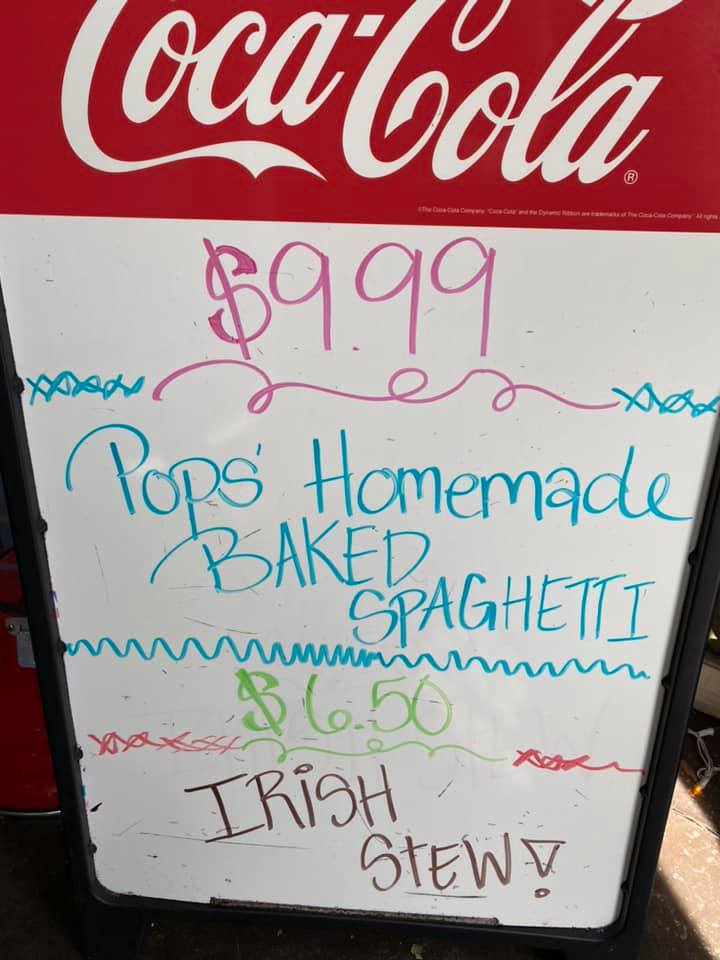 Coca-Cola
®
©The Coca-Cola Company. "Coca-Cola" and the Dynamic Ribbon are trademarks of The Coca-Cola Company. All rights
$9.99
Pops' Homemade
BAKED
SPAGHETTI
$6.50
IRiSH
StEW!